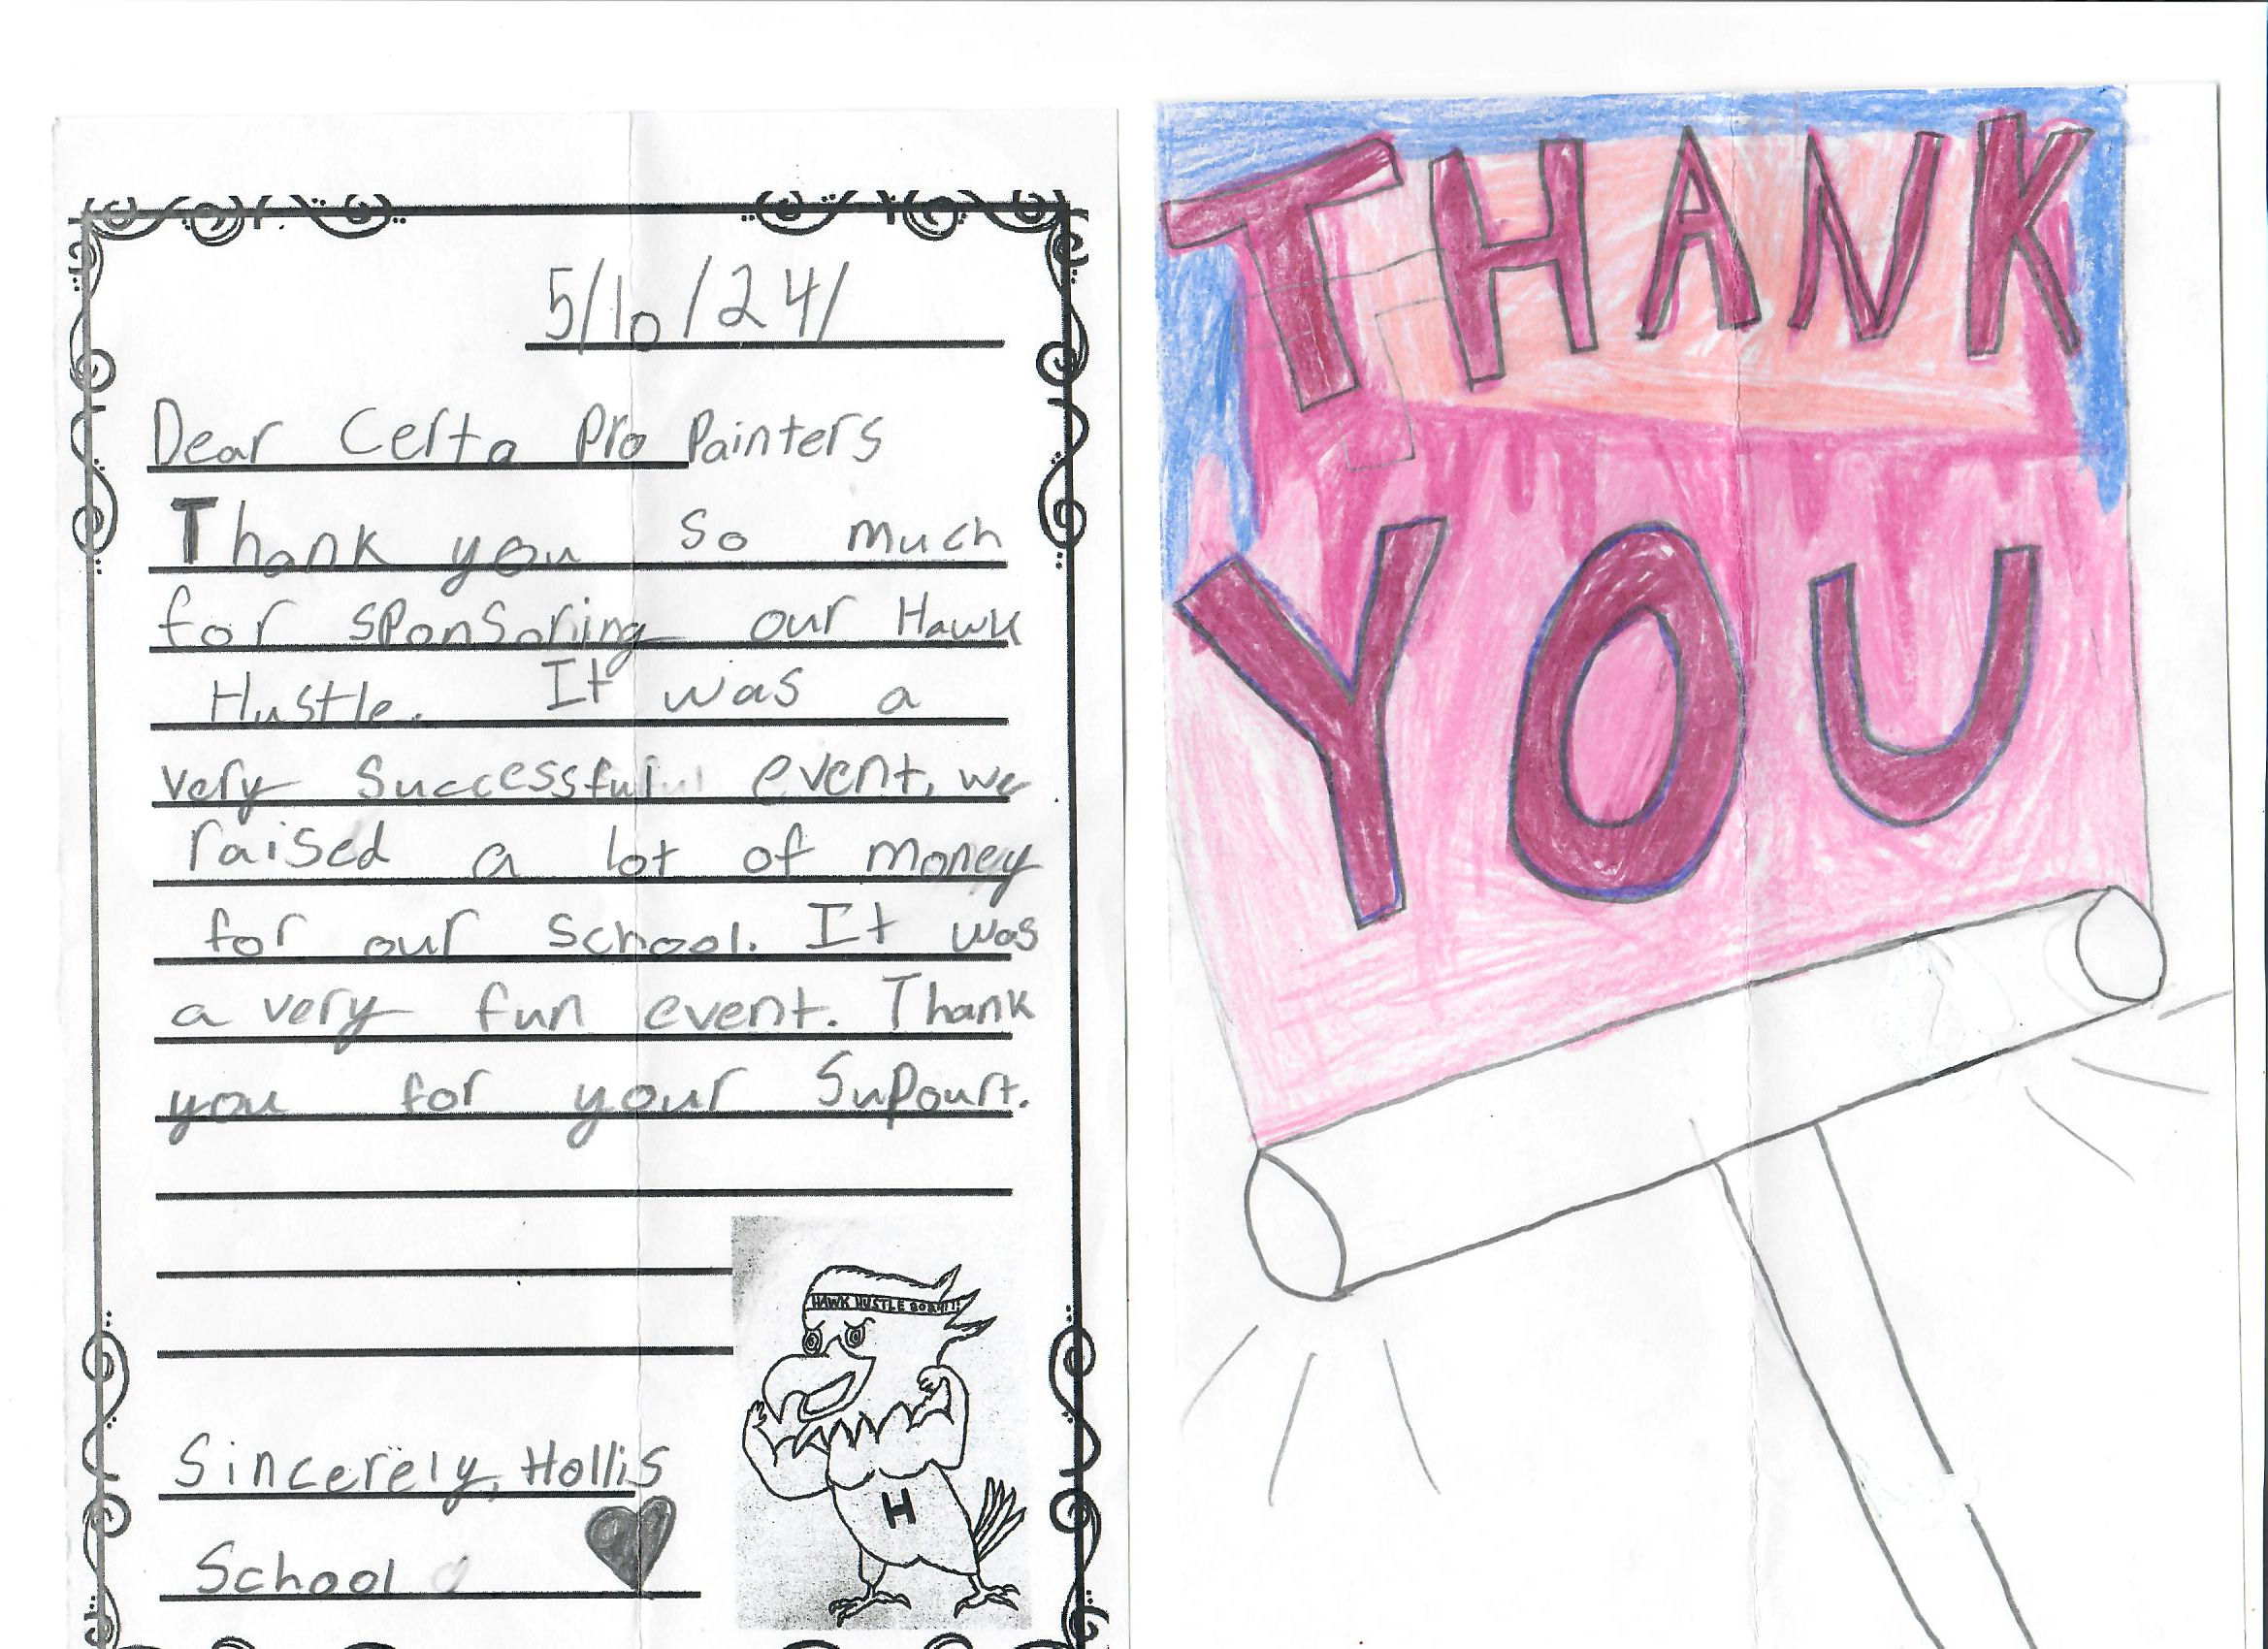 5/10/24/
Dear Certa Pro Painters
Thank you so much
for sponsoring our Hawk
Hustle. It was a
very successful event, we
raised a lot of money
for our school. It was
a very fun event. Thank
you for your Supourt.
HAWK HUSTLE
H
Sincerely, Hollis
School
THANK
YOU